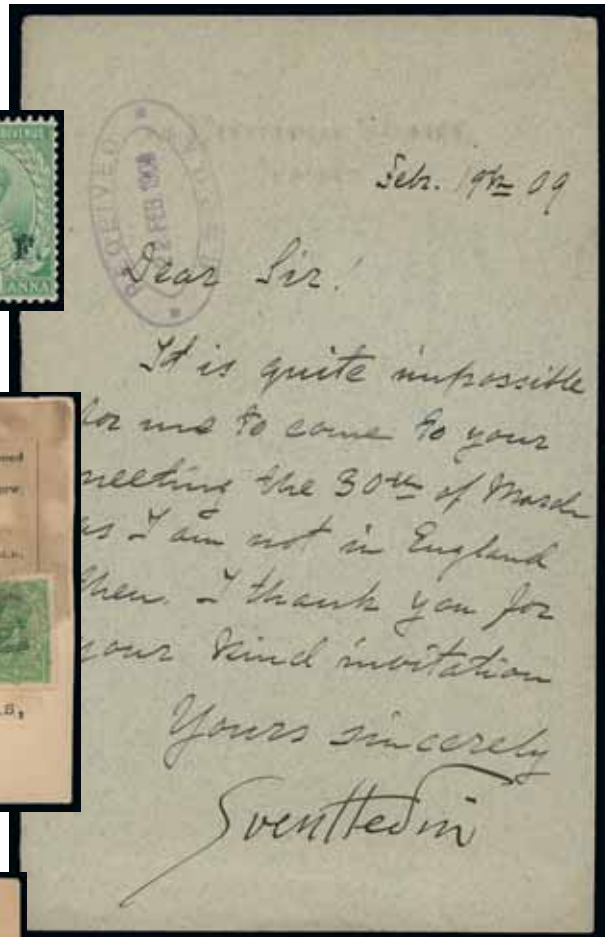 REVENUE
F.
ANNA
RECEIVED
22 FEB 1909
Febr. 19th 09
Dear Sir!
It is quite impossible
for me to come to your
meeting the 30th of March
as I am not in England
then. I thank you for
your kind invitation
Yours sincerely
Sven Hedin